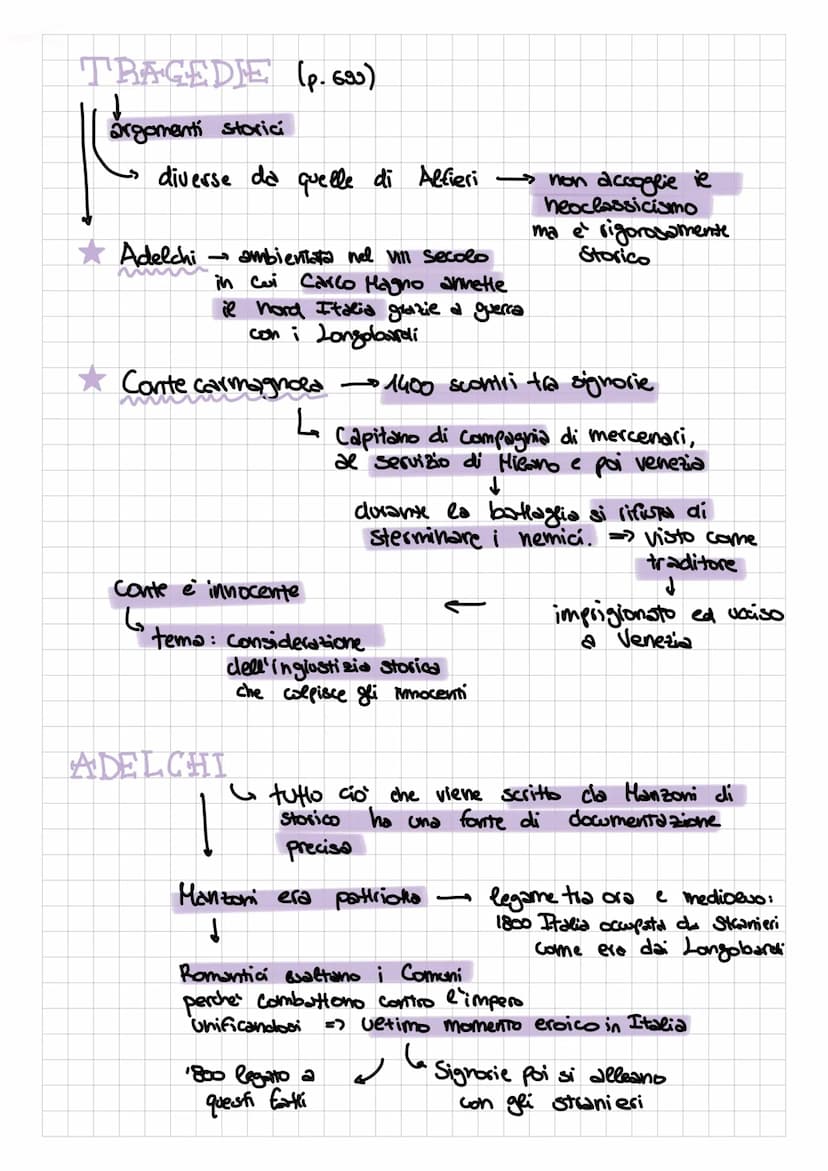 TRAGEDIE (p. 699)
argomenti storici
diverse da quelle di Alfieri → non accoglie il
neoclassicismo
ma è rigorosamente
storico
★ Adelchi → ambientata nel VIII secolo
in cui Carlo Magno annette
il nord Italia grazie a guerra
con i Longobardi
★ Conte carmagnola → 1400 scontri tra signorie
Capitano di compagnia di mercenari,
al servizio di Milano e poi venezia
↓
durante la battaglia si rifiuta di
sterminare i nemici. => visto come
traditore
↓
imprigionato ed ucciso
a Venezia
←
Conte è innocente
tema: considerazione
dell'ingiustizia storica
che colpisce gli innocenti
ADELCHI
tutto ciò che viene scritto da Manzoni di
storico ha una fonte di documentazione
precisa
Manzoni era patriota — legame tra ora e medioevo:
1800 Italia occupata da stranieri
come era dai Longobardi
↓
Romantici esaltano i Comuni
perché combattono contro l'impero
unificandosi => ultimo momento eroico in Italia
Signorie poi si alleano
con gli stranieri
'800 legato a
questi fatti